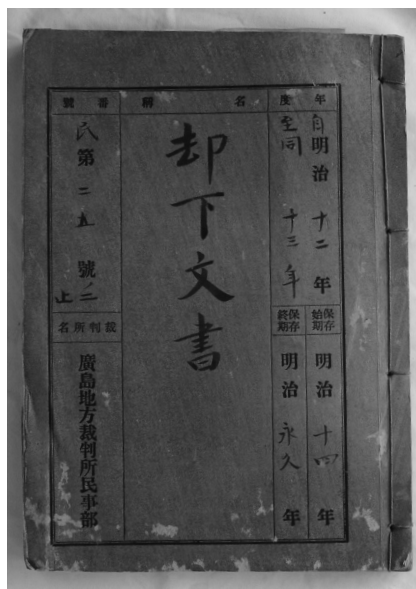 年度
自明治十二年
至同十三年
保存始期
明治十四年
保存終期
明治永久年
名稱
却下文書
番號
民第二五號ノ二
止
裁判所名
廣島地方裁判所民事部